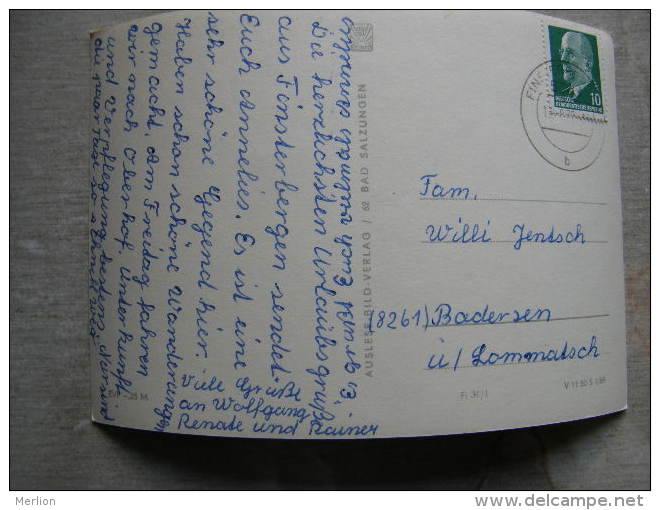 Die herrlichsten Urlaubsgrüße
aus Finsterbergen sendet
Euch Annelies. Es ist eine
sehr schöne Gegend hier.
Haben schon schöne Wanderungen
gemacht. Am Freitag fahren
wir nach Oberhof. Unterkunft
und Verpflegung bestens.
Viele Grüße
an Wolfgang,
Renate und Rainer
AUSLESE-BILD-VERLAG / 62 BAD SALZUNGEN
DEUTSCHE
DEMOKRATISCHE REPUBLIK
10
b
Fam.
Willi Jentsch
(8261) Badersen
ü/ Lommatsch
V 11 50
Merlion
www.delcampe.net